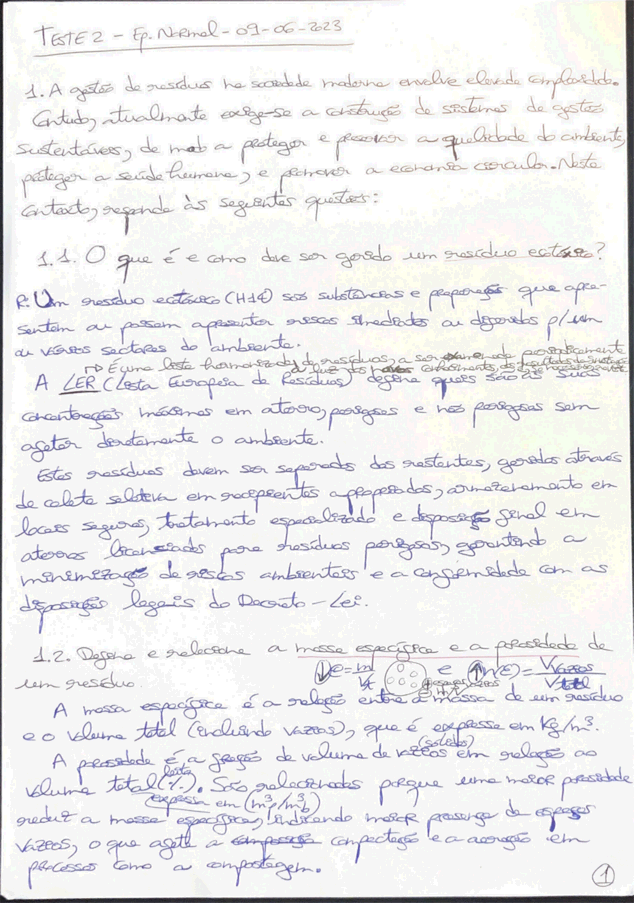 TESTE 2 - Ép. Normal - 09-06-2023
1. A gestão de resíduos na sociedade moderna envolve elevada complexidade.
Contudo, atualmente exige-se a construção de sistemas de gestão
sustentáveis, de modo a proteger e preservar a qualidade do ambiente,
proteger a saúde humana, e promover a economia circular. Neste
contexto, responda às seguintes questões:
1.1. O que é e como deve ser gerido um resíduo ecotóxico?
R: Um resíduo ecotóxico (H14) são substâncias e preparações que apre-
sentem ou possam apresentar riscos imediatos ou diferidos p/ um
ou vários sectores do ambiente.
↳ É uma lista harmonizada de resíduos, a ser examinada periodicamente
à luz dos novos conhecimentos, dos resultados da
A LER (Lista Europeia de Resíduos) define quais são as suas
concentrações máximas em aterro, perigosos e não perigosos sem
afetar diretamente o ambiente.
Estes resíduos devem ser separados dos restantes, geridos através
de coleta seletiva em recipientes apropriados, armazenamento em
locais seguros, tratamento especializado e disposição final em
aterros licenciados para resíduos perigosos, garantindo a
minimização de riscos ambientais e a conformidade com as
disposições legais do Decreto-Lei.
1.2. Defina e relacione a massa específica e a porosidade de
um resíduo
↓ρ = m/Vt e ↑n(e) = Vvazios/Vtotal
A massa específica é a relação entre a massa de um resíduo
e o volume total (incluindo vazios), que é expressa em Kg/m³.
A porosidade é a fração de volume de vazios em relação ao
volume total (%). São relacionados porque uma maior porosidade
expressa em (m³/m³)
reduz a massa específica, indicando maior presença de espaços
vazios, o que afeta a compactação e a aeração em
processos como a compostagem.
1